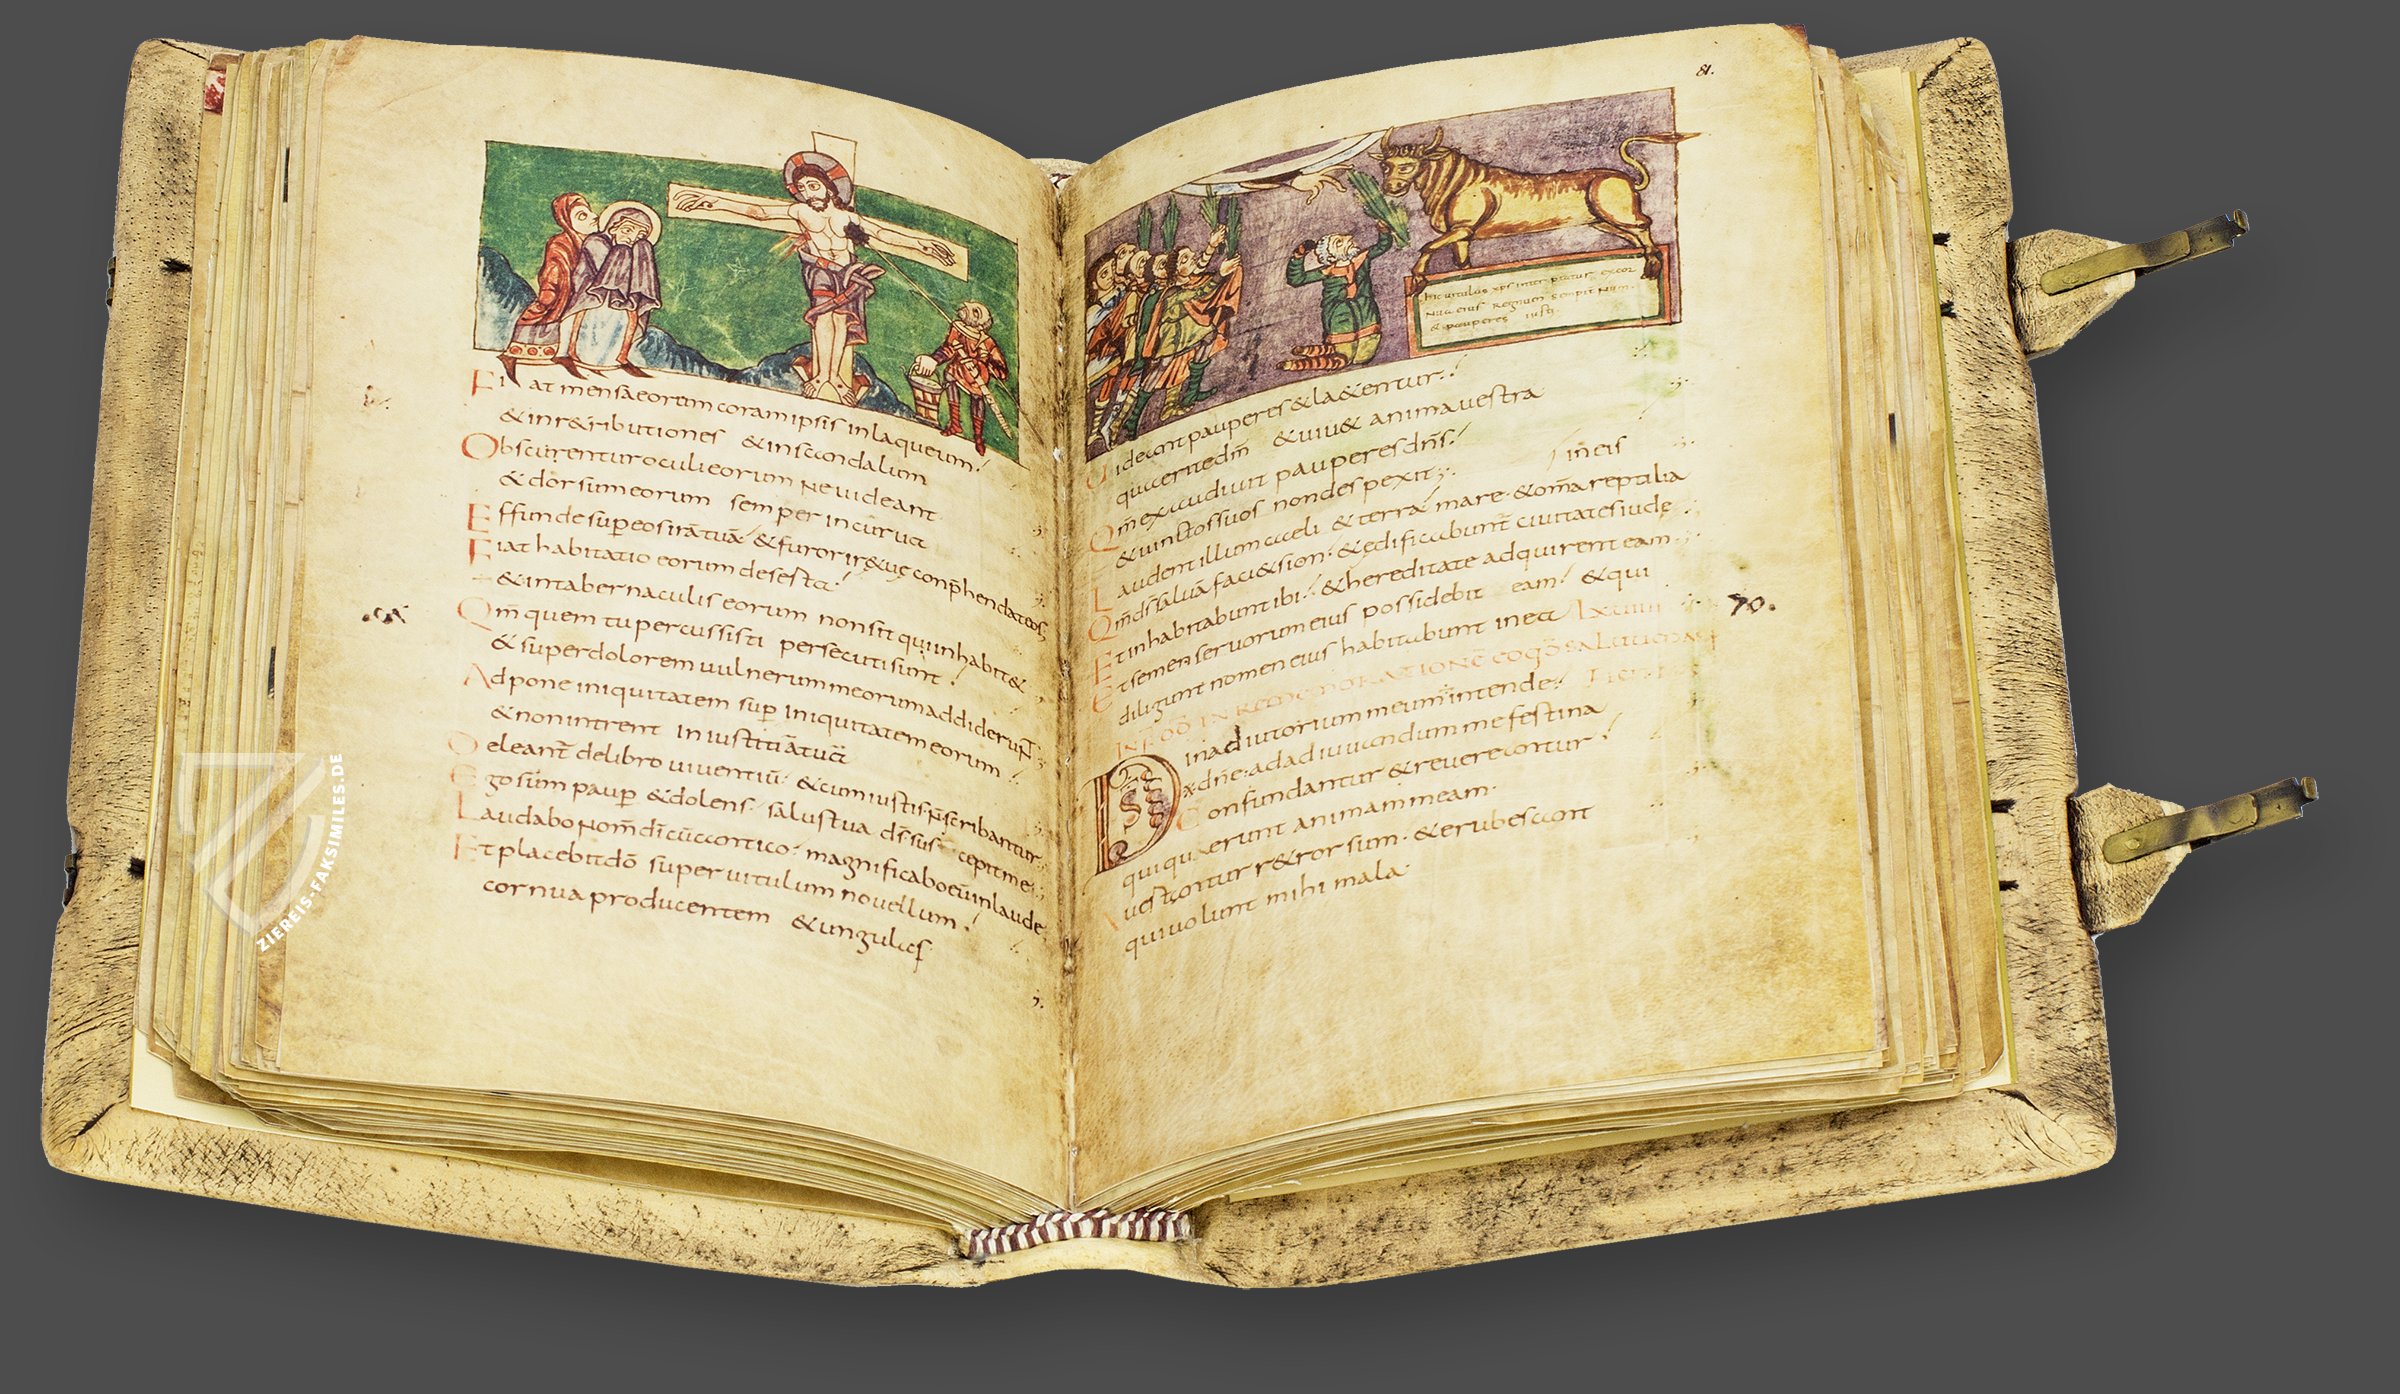 Fiat mensa eorum coram ipsis in laqueum
& inr&ributiones & inscandalum
Obscurentur oculi eorum ne uideant
& dorsum eorum semper incurua
Effunde super eos irātuā & furor ir&uę conp̄hendat eos
Fiat habitatio eorum deserta
& intabernaculis eorum non sit qui inhabit&
Qm̄ quem tu percussisti persecuti sunt
& super dolorem uulnerum meorum addiderunt̄
Adpone iniquitatem sup iniquitatem eorum
& non intrent in iustitiā tuā
Deleant̄ delibro uiuentiū & cum iustis n̄ scribantur
Ego sum paup & dolens salus tua d̄s sus cepit me
Laudabo nom̄ dī cū cantico magnificabo eū in laude
Et placebit dō super uitulum nouellum
cornua producentem & ungulas
81.
Hic uitulus xp̄s inter pretatur
regnum sempit
& pauperes iusti
Uideant pauperes & la&entur
quaerite dm̄ & uiu& anima uestra
Qm̄ exaudiuit pauperes dn̄s
& uinctos suos non despexit
in eis
Laudent illum caeli & terra mare & om̄a reptilia
Qm̄ d̄s saluā faci& sion & ędificabunt̄ ciuitates iudę
Et inhabitabunt ibi & hereditate adquirent eam
Et semen seruorum eius possidebit eam & qui
diligunt nomen eius habitabunt in ea LXVIIII
70.
IN REMEMORATIONĒ
D̄s in adiutorium meum intende
dn̄e adadiuuandum me festina
Confundantur & reuereantur
qui quaerunt animam meam
Auertantur r&rorsum & erubescant
qui uolunt mihi mala
ZIEREIS-FAKSIMILES.DE